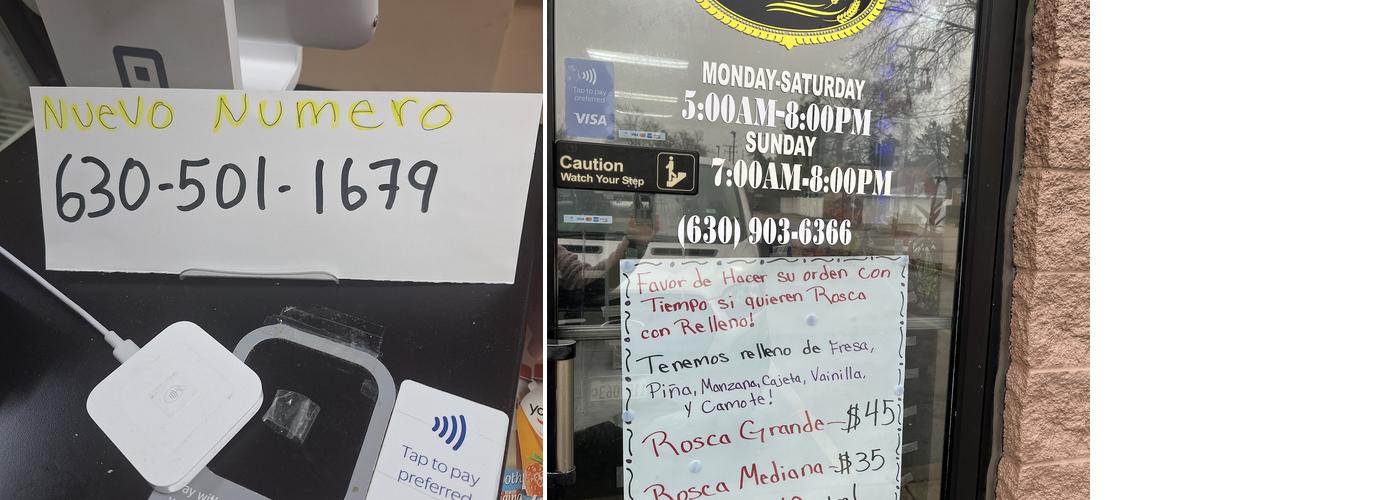 Nuevo Numero
630-501-1679
Tap to pay
preferred
MONDAY-SATURDAY
5:00AM-8:00PM
SUNDAY
7:00AM-8:00PM
(630) 903-6366
Tap to pay
preferred
VISA
Caution
Watch Your Step
Favor de Hacer su orden con
Tiempo si quieren Rosca
con Relleno!
Tenemos relleno de Fresa,
Piña, Manzana, Cajeta, Vainilla,
y Camote!
Rosca Grande-$45
Rosca Mediana-$35